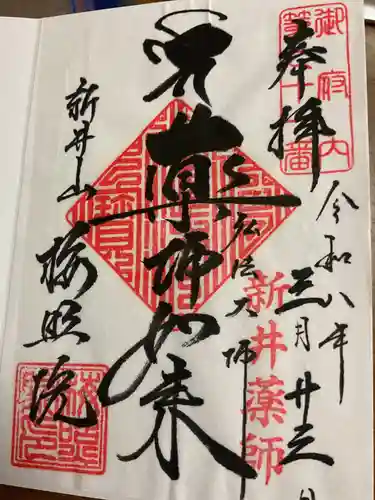 奉拝
御府内
第七十一番
令和八年
三月廿三日
新井薬師
薬師如来
弘法大師
新井山
梅照院